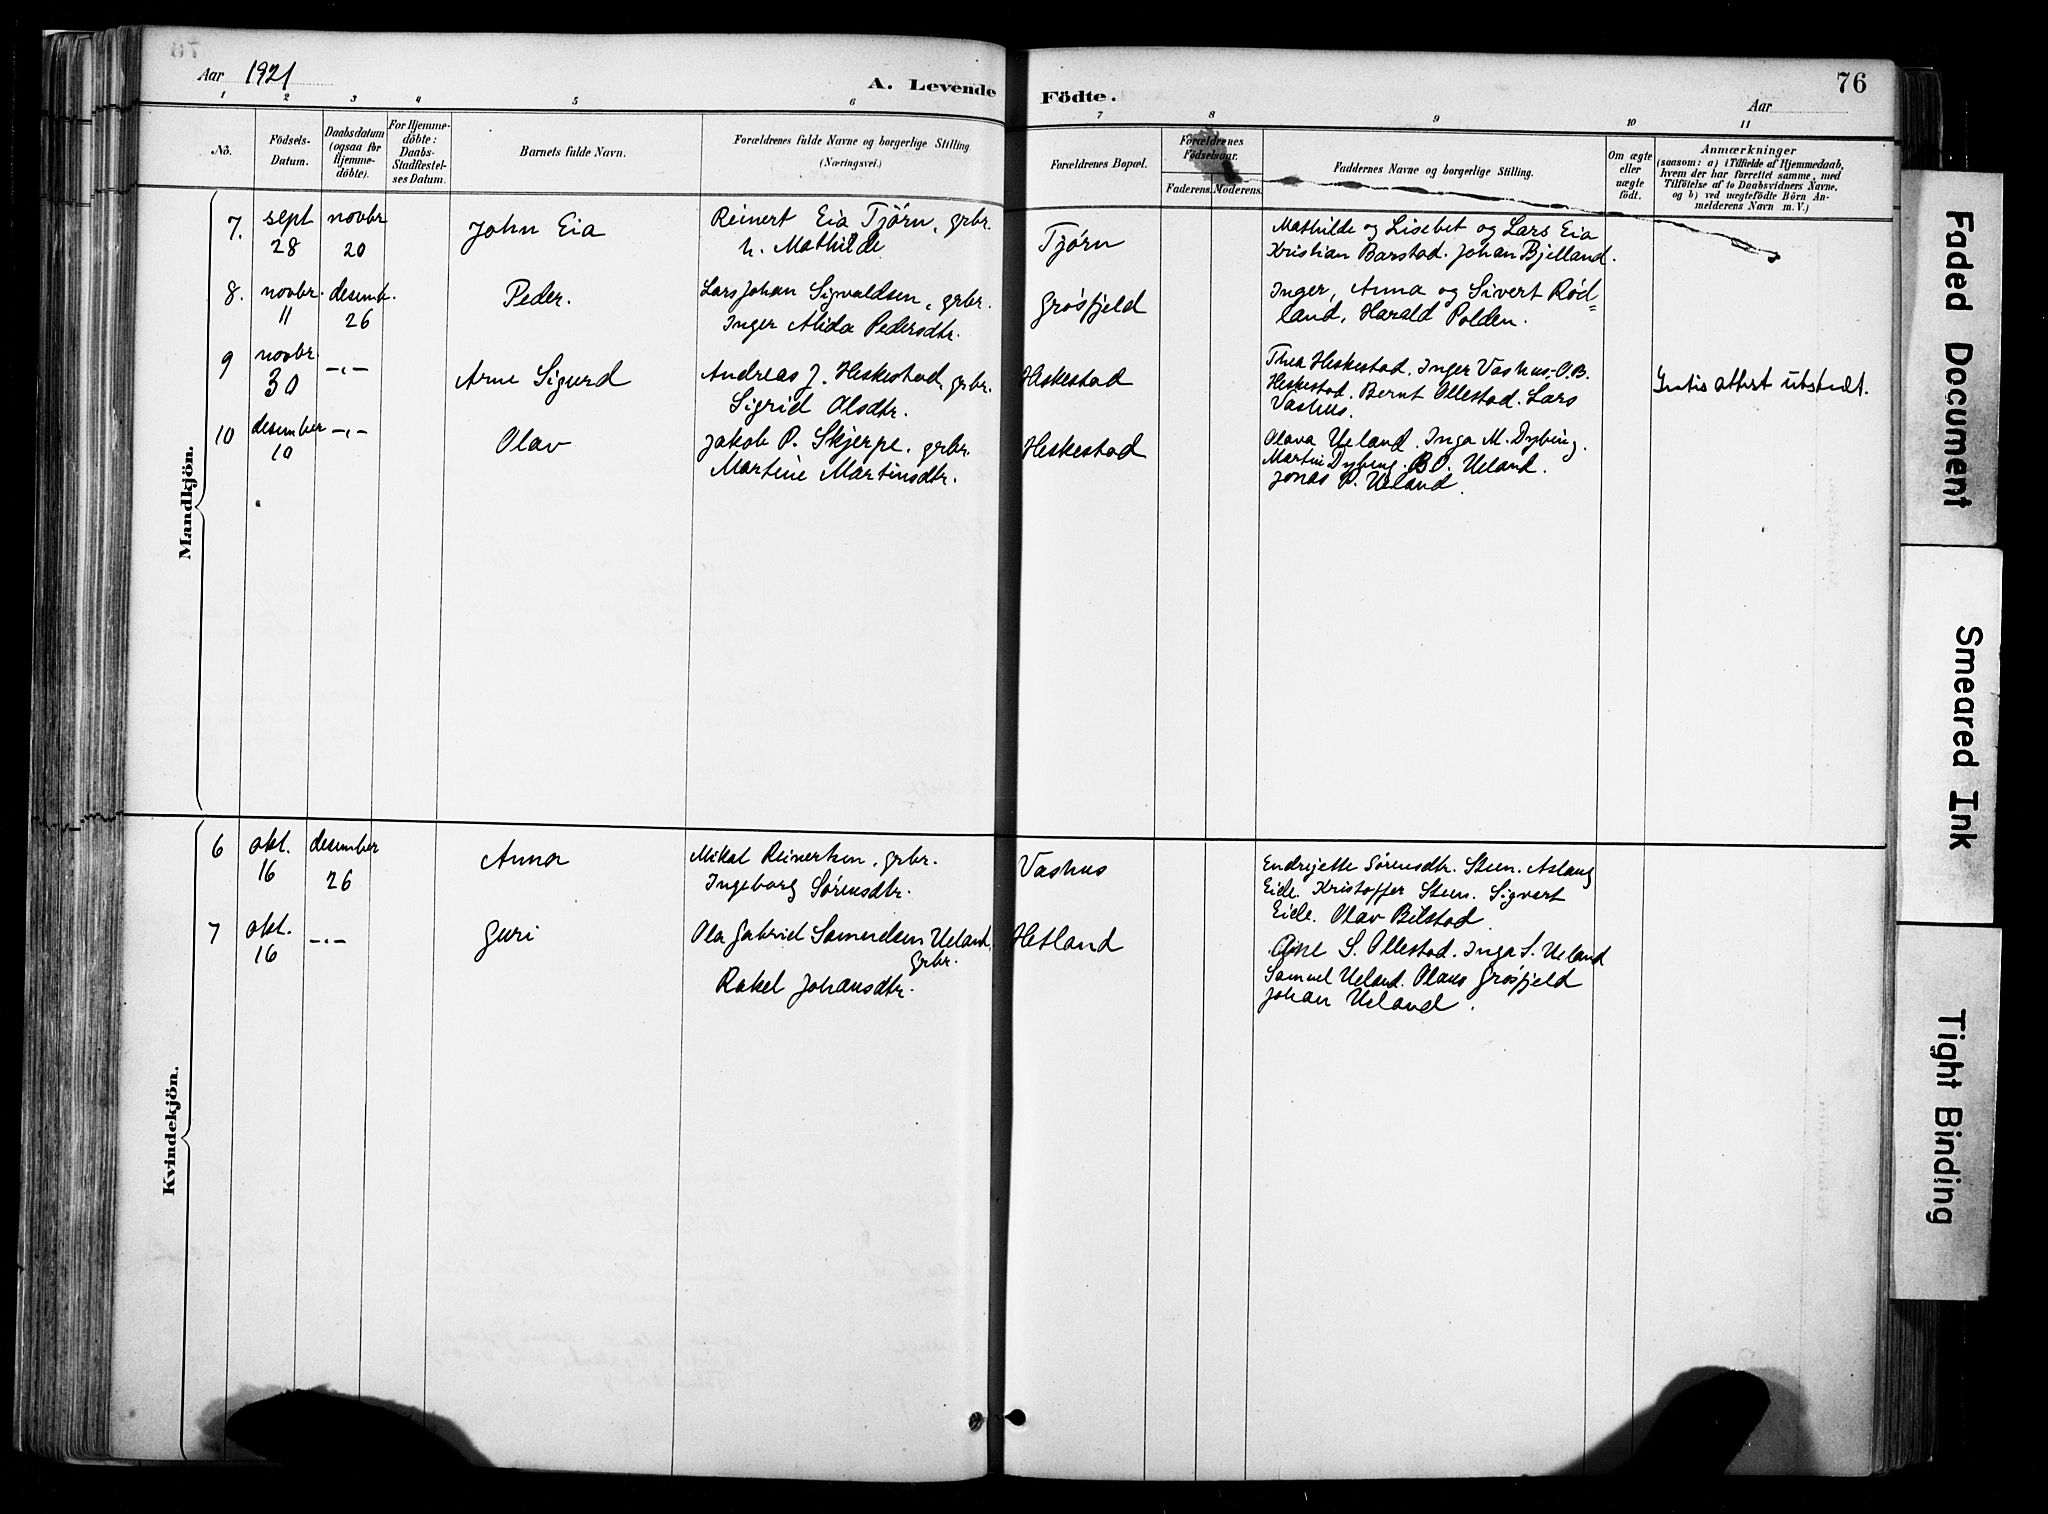 Aar 1921
A. Levende Födte.
76
Aar
1 2 3 4 5 6 7 8 9 10 11
Nô.
Födsels-Datum.
Daabsdatum (ogsaa for Hjemme-döbte).
For Hjemme-döbte: Daabs-Stadfæstel-ses Datum.
Barnets fulde Navn.
Forældrenes fulde Navne og borgerlige Stilling (Næringsvei.)
Forældrenes Bopæl.
Forældrenes Födselsaar.
Faderens. Moderens.
Faddernes Navne og borgerlige Stilling.
Om ægte eller uægte födt.
Anmærkninger
(saasom: a) i Tilfælde af Hjemmedaab,
hvem der har forrettet samme, med
Tilföielse af to Daabsvidners Navne,
og b) ved uægtefödte Börn An-
melderens Navn m. V.)
Mandkjön.
7. sept 28 novbr 20 John Eia
Reinert Eia Tjørn, grbr.
h. Mathilde
Tjørn
Mathilde og Lisebet og Lars Eia
Kristian Barstad. Johan Bjelland.
8. novbr. 11 desemb. 26 Peder.
Lars Johan Sigvaldsen, grbr.
Inger Alida Pedersdtr.
Grøsfjeld
Inger, Anna og Sivert Rød=
land, Harald Polden.
9 novbr. 30 -"- Arne Sigurd
Andreas J. Heskestad, grbr.
Sigrid Olsdtr.
Heskestad
Thea Heskestad. Inger Vashus. O.B.
Heskestad. Bernt Ollestad. Lars
Vashus.
Gratis attest utstedt.
10 desember 10 -"- Olav
Jakob P. Skjerpe, grbr.
Martine Martinsdtr.
Heskestad
Olava Ueland. Inga M. Dybing.
Martin Dybing. B.O. Ueland.
Jonas P. Ueland.
Kvindekjön.
6 okt. 16 desember 26 Anna
Mikal Reinertsen, grbr.
Ingeborg Sørensdtr.
Vashus
Endrijette Sørensdtr. Steen. Aslaug
Eide. Kristoffer Steen. Sigvert
Eide. Olav Bilstad.
7 okt. 16 -"- Guri
Ola Gabriel Samuelsen Ueland,
grbr.
Rakel Johansdtr.
Hetland
S. Ollestad. Inga S. Ueland
Samuel Ueland. Olaus Grøsfjeld
Johan Ueland.
Faded Document
Smeared Ink
Tight Binding